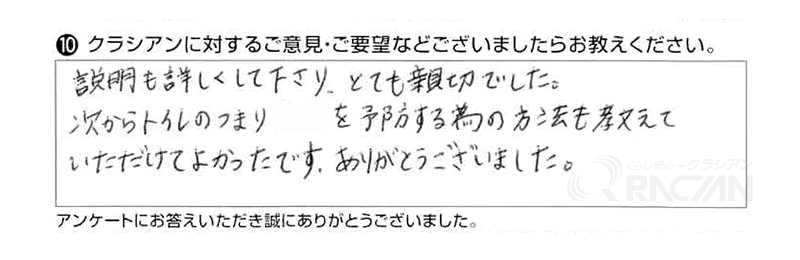 ⑩ クラシアンに対するご意見・ご要望などございましたらお教えください。
説明も詳しくして下さり、とても親切でした。
次からトイレのつまり を予防する為の方法も教えて
いただけてよかったです。ありがとうございました。
くらし安心 クラシアン
QRACIAN
アンケートにお答えいただき誠にありがとうございました。